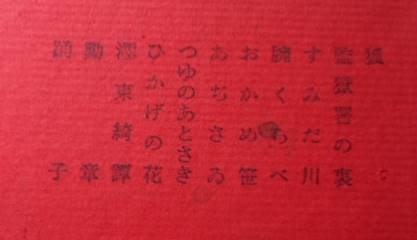 狐
監獄署の裏
すみだ川
腕くらべ
おかめ笹
あぢさゐ
つゆのあとさき
ひかげの花
濹東綺譚
勳章
踊子